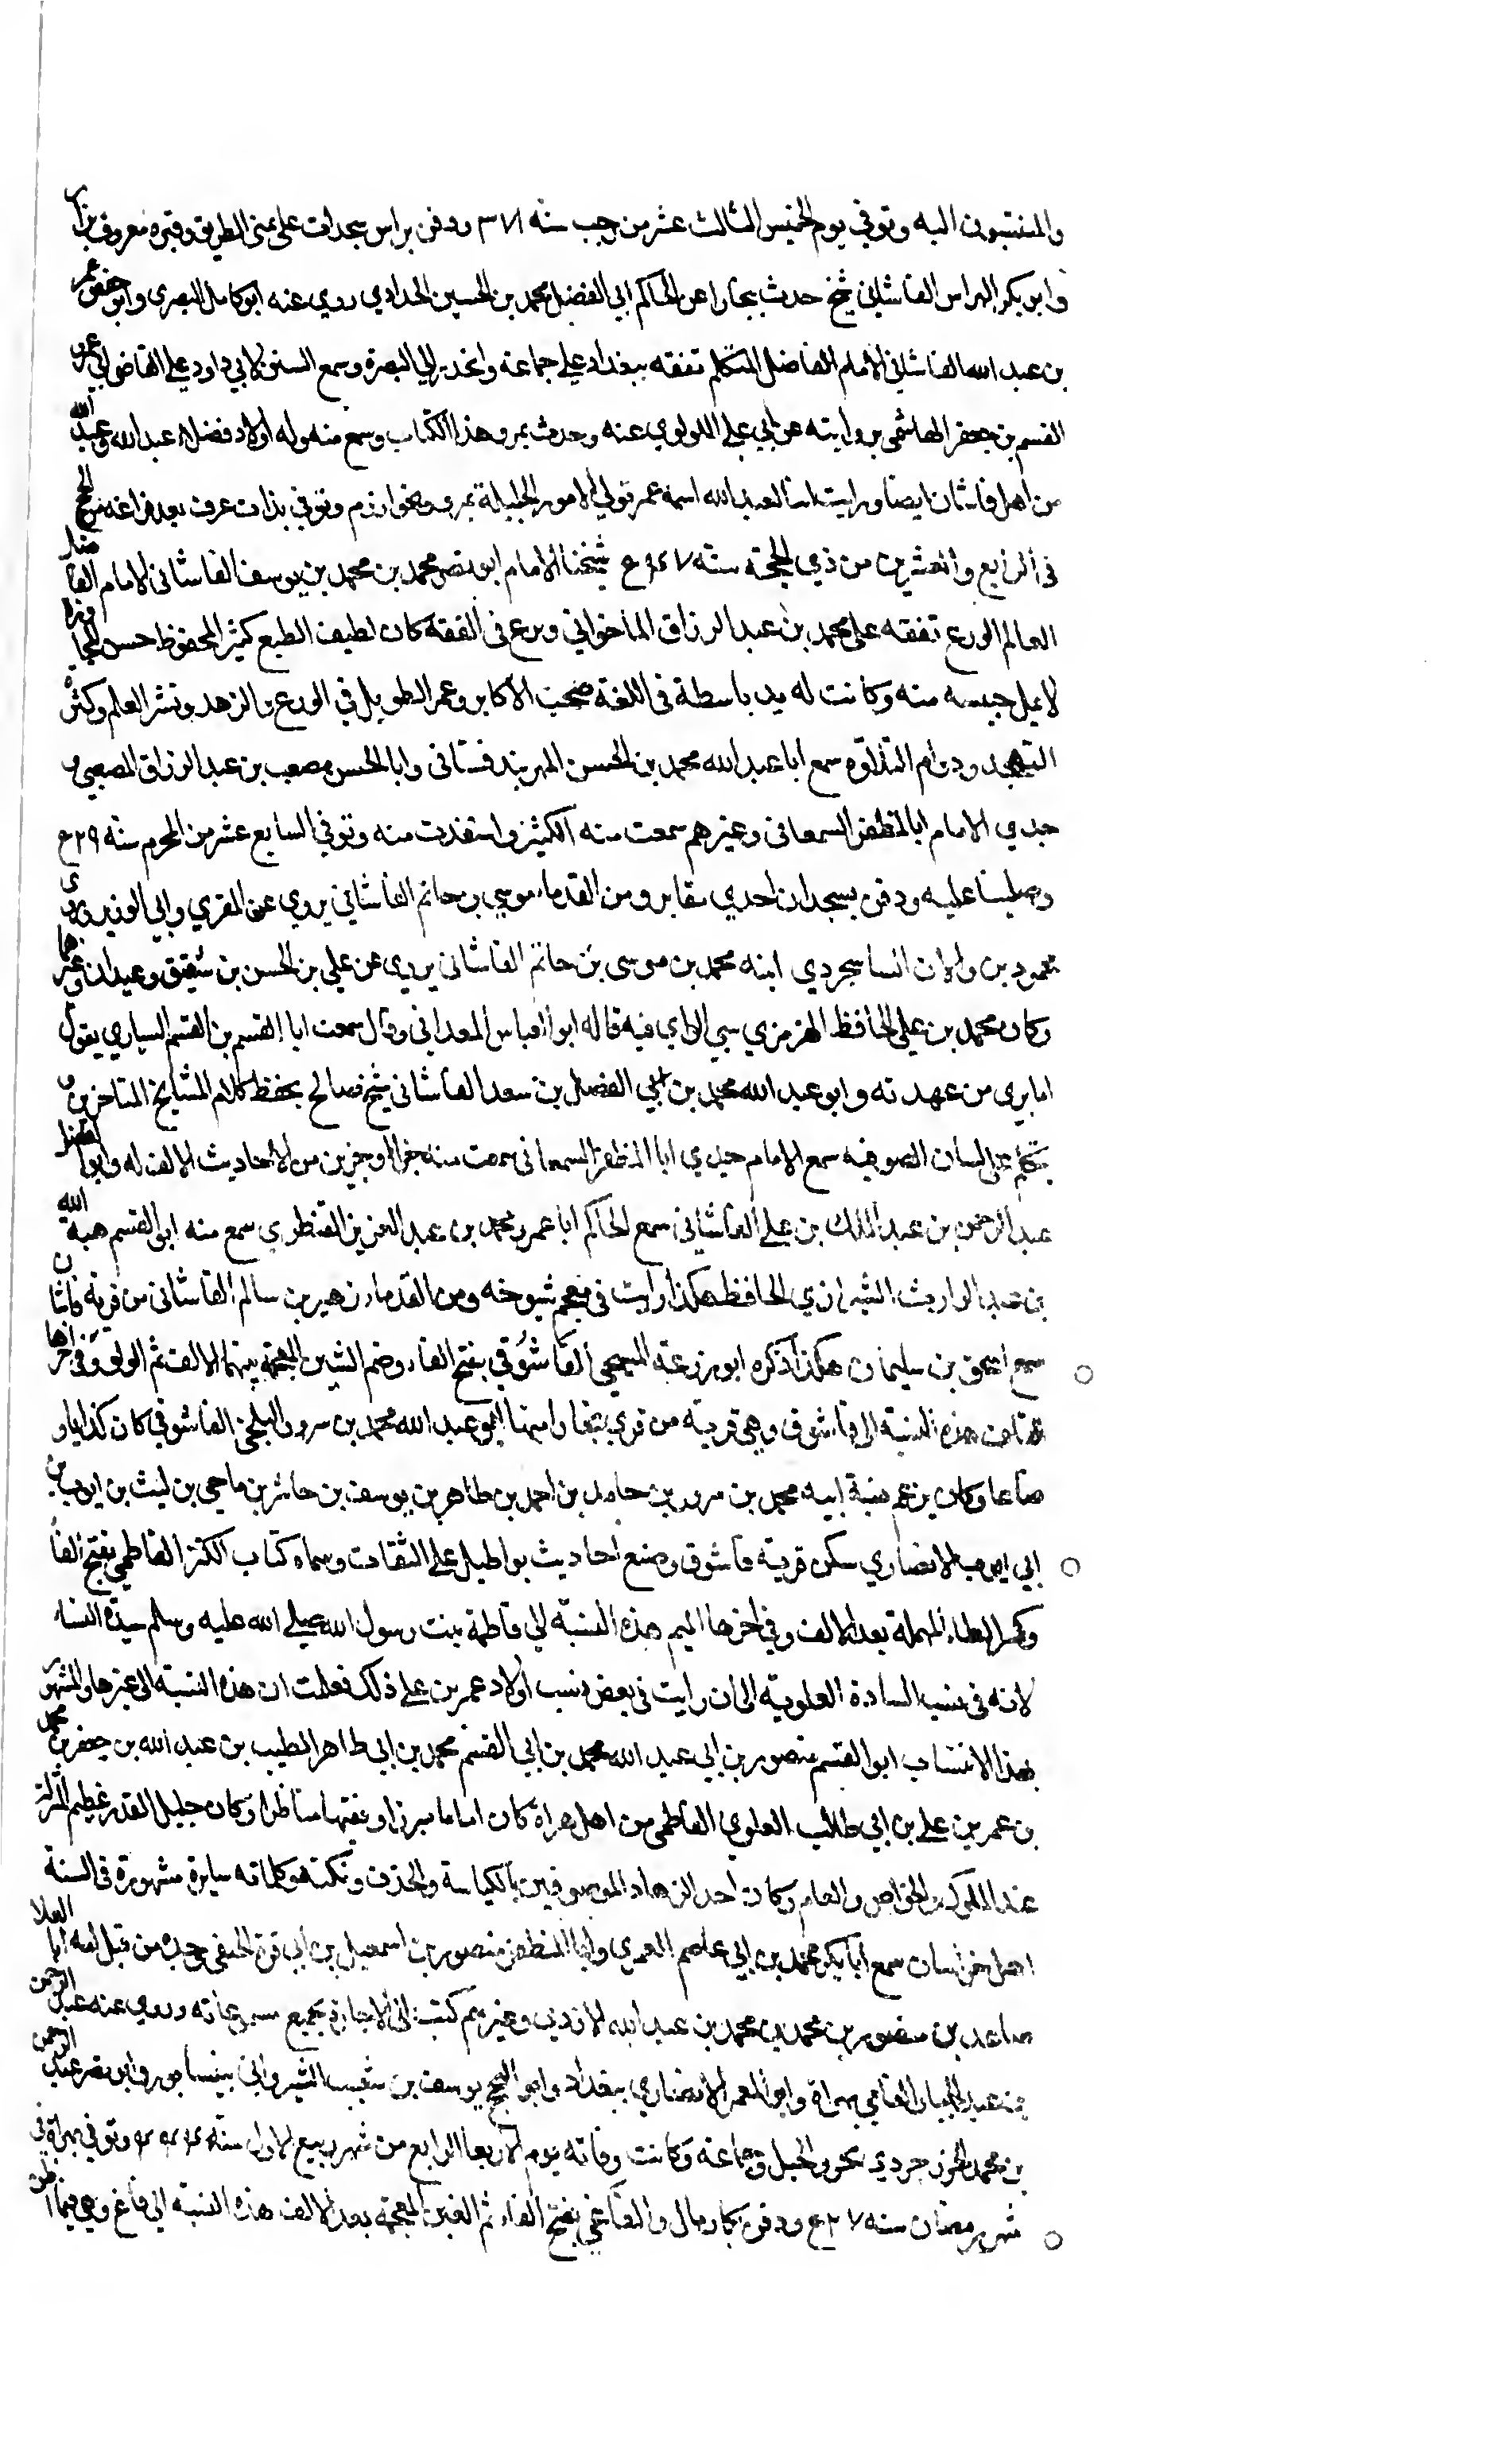 والمنتسبون اليه وتوفي يوم الخميس الثالث عشر من رجب سنه ٣٧١ ودفن براس سجدان على يمنى الطريق وقبره معروف يزار
وابو بكر البراس الفاشاني شيخ حدث ببخارا عن الحاكم ابي الفضل محمد بن الحسين الحدادي روي عنه ابو كامل البصري وابو حفص عمر
بن عبد الله الفاشاني الامام الفاضل المتكلم تفقه ببغداد على جماعة وانحدر الي البصرة وسمع السنن لابي داود على القاضي ابي عمر
القسم بن جعفر الهاشمي بروايته عن ابي علي اللولوي عنه وحدث بمرو هذا الكتاب وسمع منه وله اولاد فضلا عبد الله وعبيد الله
من اهل فاشان ايضا ورايت ابنا لعبد الله اسمه عمر تولي الامور الجليلة بمرو وبخوارزم وتوفي بذات عرق بعد فراغه من الحج
في الرابع والعشرين من ذي الحجة سنة شيخنا الامام ابو نصر محمد بن محمد بن يوسف الفاشاني الامام الفاضل
العالم الورع تفقه على محمد بن عبد الرزاق الماخواني وبرع في الفقه كان لطيف الطبع كثير المحفوظ حسن المحاورة
لا يمل جليسه منه وكانت له يد باسطة في اللغة صحب الاكابر وعمر الطويل في الورع والزهد ونشر العلم وكثرة
التهجد ودوام التلاوه سمع ابا عبد الله محمد بن الحسن المهربندقشاني وابا الحسن مصعب بن عبد الرزاق المصعبي و
جدي الامام ابا المظفر السمعاني وغيرهم سمعت منه الكثير واستفدت منه وتوفي السابع عشر من المحرم سنة
وصلينا عليه ودفن بسجدان احدي مقابر ومن القدماء موسي بن حاتم الفاشاني يروي عن المقري وابي الوزير روى
محمود بن والان الساسجردي ابنه محمد بن موسى بن حاتم الفاشاني يروى عن علي بن الحسن بن شقيق وعبدان وغيرهما
وكان محمد بن علي الحافظ الهرمزي سي الراي فيه قاله ابو العباس المعداني وقال سمعت ابا القسم بن القسم السياري يقول
انا بري من عهدته وابو عبد الله محمد بن ابي الفضل بن سعد الفاشاني شيخ صالح يحفظ كلام المشايخ المتاخرين و
يتكلم على لسان الصوفيه سمع الامام جدي ابا المظفر السمعاني سمعت منه جزا او جزين من الاحاديث الالف له وابو الفضل
عبد الرحمن بن عبد الملك بن علي الفاشاني سمع الحاكم ابا عمرو محمد بن عبد العزيز القنطري سمع منه ابو القسم هبة الله
بن عبد الوارث الشيرازي الحافظ هكذا رايت في معجم شيوخه ومن القدماء زهير بن سالم الفاشاني من قرية فاشان
سمع اسحق بن سليمان هكذا ذكره ابو زرعة السبحي الفاشُوقي بفتح الفاء وضم الشين المعجمة بينهما الالف ثم الواو وفي اخرها
القاف هذه النسبة الي فاشوق وهي قرية من قري بخارا منها ابو عبد الله محمد بن سرور البلخي الفاشوقي كان كذابا و
ضاعا وكان يزعم نسبة ابيه محمد بن سرور بن حامد بن احمد بن طاهر بن يوسف بن حاشر بن ماحي بن ليث بن ايوب بن
ابي ايوب الانصاري سكن قرية فاشوق وصنع احاديث بواطيل على الثقات وسماه كتاب الكنز الفاطمي بفتح الفا
وكسر الطاء المهملة بعد الالف وفي اخرها الميم هذه النسبة الي فاطمة بنت رسول الله صلي الله عليه وسلم سيدة النساء
لانه في نسب السادة العلوية الى ان رايت في بعض نسب اولاد عمر بن علي ذلك فعلمت ان هذه النسبة الى غيرها والمشهور
بهذا الانتساب ابو القسم منصور بن ابي عبد الله محمد بن ابي القسم محمد بن ابي طاهر الطيب بن عبد الله بن جعفر بن محمد
بن عمر بن علي بن ابي طالب العلوي الفاطمي من اهل هراة كان اماما مبرزا وفقيها مناظرا وكان جليل القدر عظيم المنزلة
عند الملوك والخواص والعام وكان احد الزهاد الموصوفين بالكياسة والحذق ونكته وكلماته سايرة مشهورة في السنة
اهل خراسان سمع ابا بكر محمد بن ابي عاصم العمري وابا المظفر منصور بن اسمعيل بن ابي قرة الحنفي وجده من قبل امه ابا العلا
صاعد بن منصور بن محمد بن محمد بن عبد الله الازدي وغيرهم كتب الي الاجازة بجميع مسموعاته وروي عنه عبد الرحمن
بن عبد الجبار الفامي بهراة وابو المعمر الانصاري ببغداد وابو الفتح يوسف بن شعيب الشيرواني بنيسابور وابو نصر عبد الرحمن
بن محمد الخرجردي بحرو الجبل وجماعة وكانت وفاته يوم الاربعا الرابع من شهر ربيع الاول سنه وتوفي بهراة في
شهر رمضان سنه ودفن بكارمال والفاغي بفتح الفاء ثم الغين المعجمة بعد الالف هذه النسبة الي فاغ وهي فيما اظن